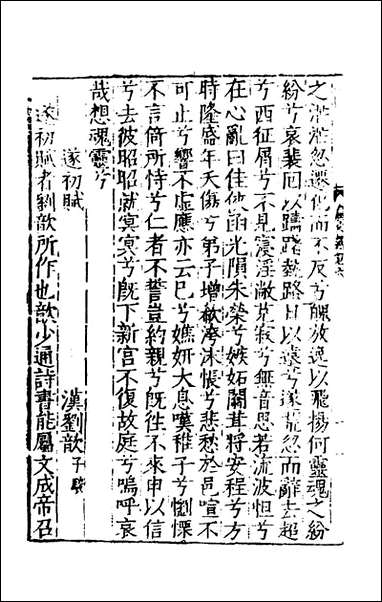 之茫茫忽遷化而不反兮魄放逸以飛揚何靈魂之紛
紛兮哀裴回以躊躇勢路日以遠兮遂荒忽而辭去超
兮西征屑兮不見寖淫敞怳寂兮無音思若流波怛兮
在心亂曰佳俠函光隕朱榮兮嫉妬闟茸將安程兮方
時隆盛年夭傷兮弟子增欷洿沫悵兮悲愁於邑喧不
可止兮響不虛應亦云已兮嫶妍太息嘆稚子兮懰慄
不言倚所恃兮仁者不誓豈約親兮既徃不來申以信
兮去彼昭昭就冥冥兮既下新宫不復故庭兮嗚呼哀
哉想魂靈兮
遂初賦
漢劉歆子駿
遂初賦者劉歆所作也歆少通詩書能屬文成帝召